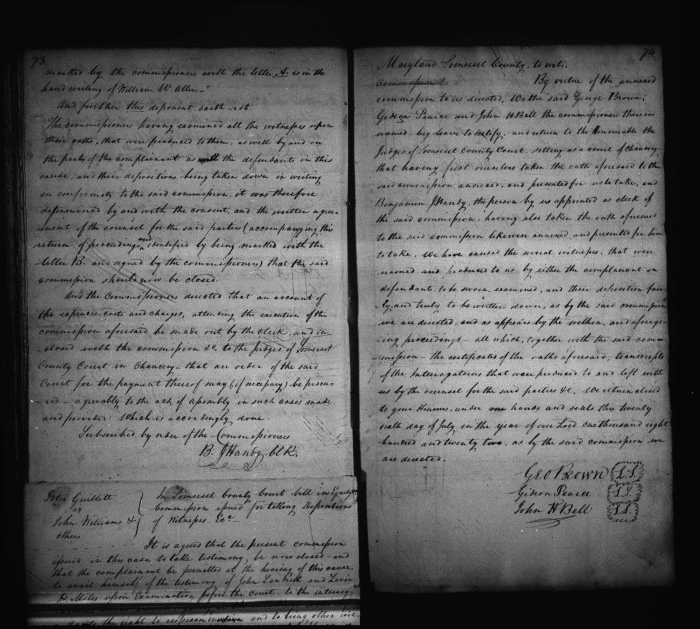 73
marked by the commissioners with the letter A is in the
hand writing of William W. Allen.
And further this deponent saith not.
The commissioners having examined all the witnesses upon
their oaths, that were produced to them, as well by and on
the part of the complainant as with the defendants in this
cause, and their depositions being taken down in writing
in conformity to the said commission, it was therefore
determined by and with the consent, and the written agree-
ment of the counsel for the said parties (accompanying this
return of proceedings and identified by being marked with the
letter B. and signed by the commissioners) that the said
commission should now be closed.
And the Commissioners directed that an account of
the expences, costs and charges, attending the execution of the
commission aforesaid be made out by the clerk, and in-
closed with the commission &c. to the judges of Somerset
County Court in Chancery that an order of the said
Court for the payment thereof may (if necessary) be
agreeably to the act of assembly in such cases made
and provided Which is accordingly done
Subscribed by order of the Commissioners
B. J Handy. Clk.
Peter Guillitt
vs
John Williams &
others
In Somerset County Court bill in Equity
Commission issued for taking Depositions
of Witnesses &ca
It is agreed that the present commission
issued in this case to take testimony, be now closed and
that the complainant be permitted at the hearing of this cause
to avail himself of the testimony of John and Levin
D. Miles upon Examination before the court, to the
the right to and to being other
74
Maryland Somerset County, to wit,
By virtue of the annexed
commission to us directed, We the said George Brown,
Gideon Pearce and John H Bell the commissioners therein
named beg leave to certify, and return to the Honorable the
Judges of Somerset County Court, setting as a court of Chancery
that having first ourselves taken the oath aforesaid to the
said commission annexed, and presented for us to take, and
Benjamin J Handy, the person by us appointed as clerk of
the said commission, having also taken the oath aforesaid
to the said commission likewise annexed, and presented for him
to take. We have caused the several witnesses, that were
named and produced to us by either the complainant or
defendants, to be sworn, examined, and their deposition fair-
ly, and truly to be written down, as by the said commission
we are directed, and as appears by the within, and aforego-
ing proceedings - all which, together with the said com-
mission - the certificates of the oaths aforesaid, transcripts
of the Interrogatories that were produced to and left with
us by the counsel for the said parties &c. We return closed
to your Honors, under our hands and seals this twenty
sixth day of July in the year of our Lord one thousand eight
hundred and twenty two, as by the said commission we
are directed.
Geo Brown L.S.
Gideon Pearce L.S.
John H Bell L.S.